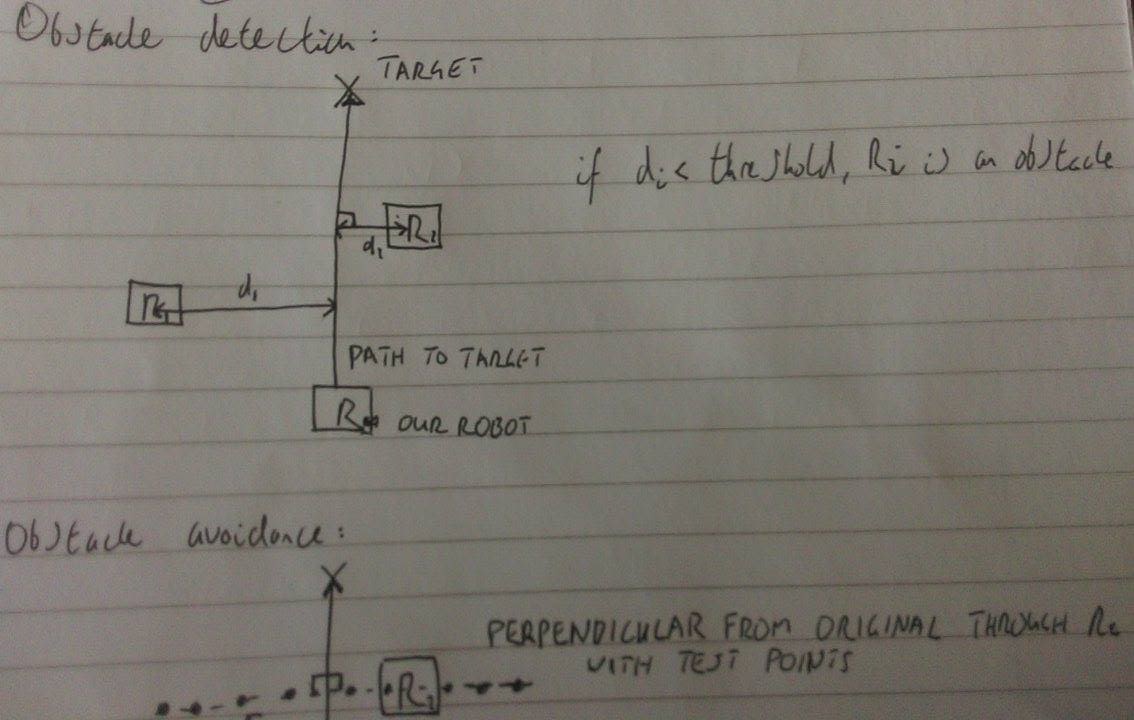 Obstacle detection:
TARGET
if di < threshold, Ri is an obstacle
R1
d1
d1
PATH TO TARGET
R
OUR ROBOT
Obstacle avoidance:
PERPENDICULAR FROM ORIGINAL THROUGH Ri
WITH TEST POINTS